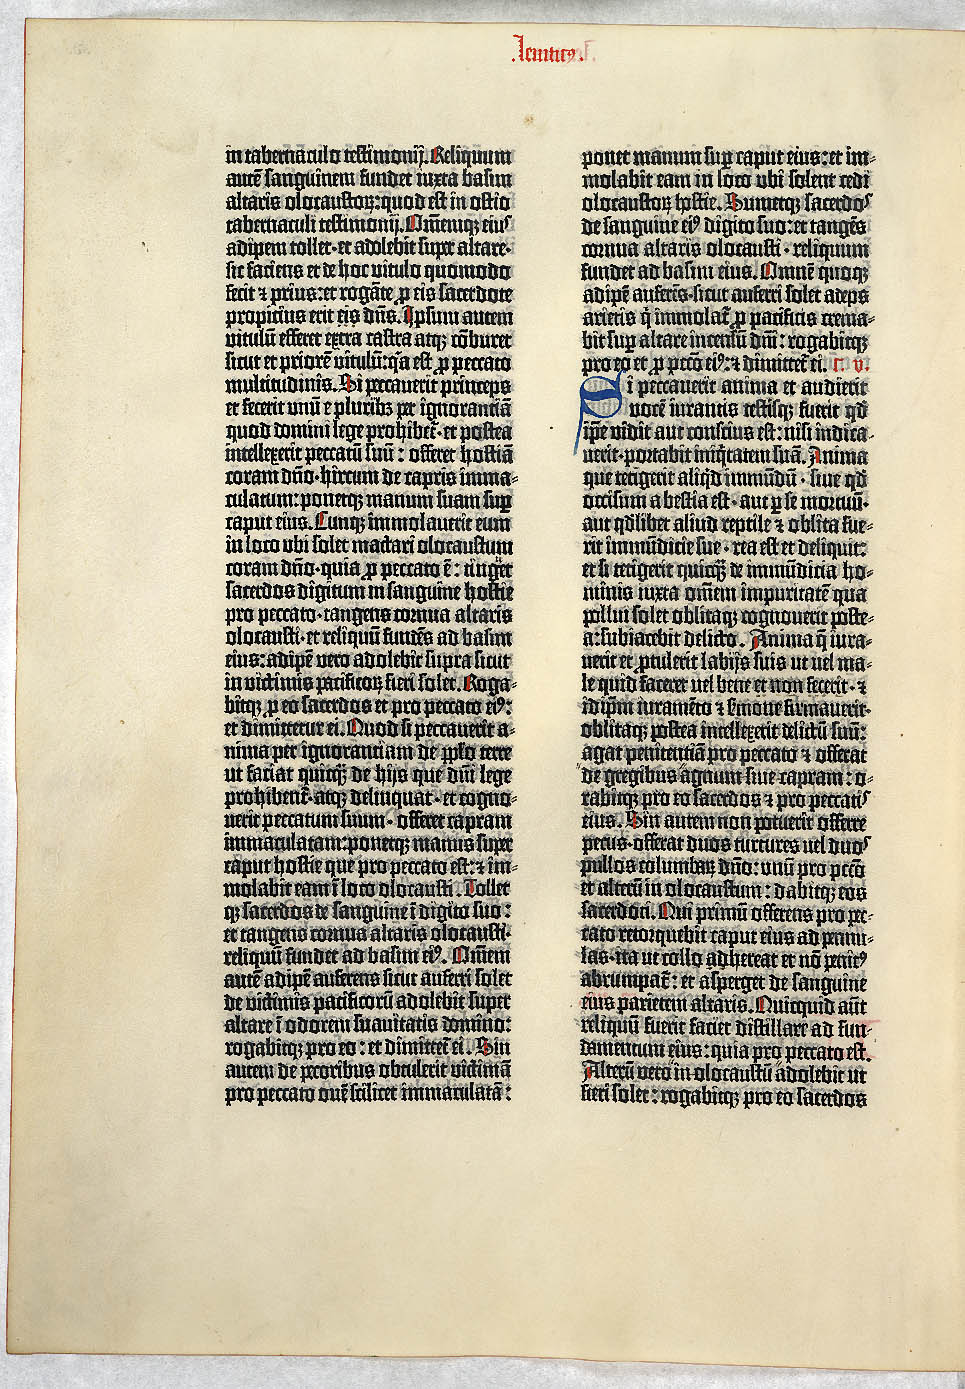 .leuiticꝰ.
in tabernaculo testimonij. Reliquum
autē sanguinem fundet iuxta basim
altaris olocaustoꝝ: quod est in ostio
tabernaculi testimonij. Omnemqꝫ eius
adipem tollet· et adolebit super altare·
sic faciens et de hoc vitulo quomodo
fecit ⁊ prius: et rogāte ꝓ eis sacerdote
propicius erit eis dn̄s. Ipsum autem
vitulū efferet extra castra atqꝫ cōburet
sicut et priorē vitulū: q̄a est ꝓ peccato
multitudinis. Si peccauerit princeps
et fecerit unū e pluribꝫ per ignorantiā
quod domini lege prohibet̄· et postea
intellexerit peccatū suū: offeret hostiā
coram dn̄o· hircum de capris imma-
culatum: ponetqꝫ manum suam sup̄
caput eius. Cunqꝫ immolauerit eum
in loco ubi solet mactari olocaustum
coram dn̄o· quia ꝓ peccato ē: tinguet
sacerdos digitum in sanguine hostie
pro peccato· tangens cornua altaris
olocausti· et reliquū fundēs ad basim
eius: adipē vero adolebit supra sicut
in victimis pacificoꝝ fieri solet. Roga-
bitqꝫ ꝓ eo sacerdos et pro peccato eiꝰ:
et dimittetur ei. Quod si peccauerit a-
nima per ignorantiam de pp̄lo terre
ut faciat quicq̄ꝫ de hijs que dn̄i lege
prohibent̄· atqꝫ delinquat· et cogno-
uerit peccatum suum· offeret capram
immaculatam: ponetqꝫ manus super
caput hostie que pro peccato est: ⁊ im-
molabit eam ī loco olocausti. Tollet
qꝫ sacerdos de sanguine ī digito suo:
et tangens cornua altaris olocausti·
reliquū fundet ad basim eiꝰ. Omnem
autē adipē auferens sicut auferri solet
de victimis pacificorū adolebit super
altare ī odorem suauitatis domino:
rogabitqꝫ pro eo: et dimittet̄ ei. Sin
autem de pecoribus obtulerit victimā
pro peccato ouē scilicet immaculatā:
ponet manum sup̄ caput eius: et im-
molabit eam in loco ubi solent cedi
olocaustoꝝ hostie. Sumetqꝫ sacerdos
de sanguine eiꝰ digito suo: et tangēs
cornua altaris olocausti· reliquum
fundet ad basim eius. Omnē quoqꝫ
adipē auferēs· sicut auferri solet adeps
arietis q̄ immolat̄ ꝓ pacificis crema-
bit sup̄ altare incensū dn̄i: rogabitqꝫ
pro eo et ꝓ pctō eiꝰ: ⁊ dimittet̄ ei. c. v.
Si peccauerit anima et audierit
vocē iurantis testisqꝫ fuerit qd̄
ip̄e vidit aut conscius est: nisi indica-
uerit· portabit iniq̄tatem suā. Anima
que tetigerit aliq̄d immūdū· siue qd̄
occisum a bestia est· aut ꝑ se mortuū·
aut qd̄libet aliud reptile ⁊ oblita fue-
rit immūdicie sue· rea est et deliquit:
et si tetigerit quicq̄ꝫ de immūdicia ho-
minis iuxta omēm impuritatē qua
pollui solet oblitaqꝫ cognouerit poste-
a: subiacebit delicto. Anima q̄ iura-
uerit et ꝓtulerit labijs suis ut uel ma-
le quid faceret uel bene et non fecerit· ⁊
idip̄m iuramēto ⁊ s̄mone firmauerit·
oblitaqꝫ postea intellexerit delictū suū:
agat penitentiā pro peccato ⁊ offerat
de gregibus agnam siue capram: o-
rabitqꝫ pro eo sacerdos ⁊ pro peccatis
eius. Sin autem non potuerit offerre
pecus· offerat duos turtures uel duos
pullos columbaꝝ dn̄o: unū pro pctō
et alterū in olocaustum: dabitqꝫ eos
sacerdoti. Qui primū offerens pro pec-
cato retorquebit caput eius ad pennu-
las· ita ut collo adhereat et nō penitꝰ
abrumpat̄: et asperget de sanguine
eius parietem altaris. Quicquid aūt
reliquū fuerit faciet distillare ad fun-
damentum eius: quia pro peccato est.
Alterū vero in olocaustū adolebit ut
fieri solet: rogabitqꝫ pro eo sacerdos